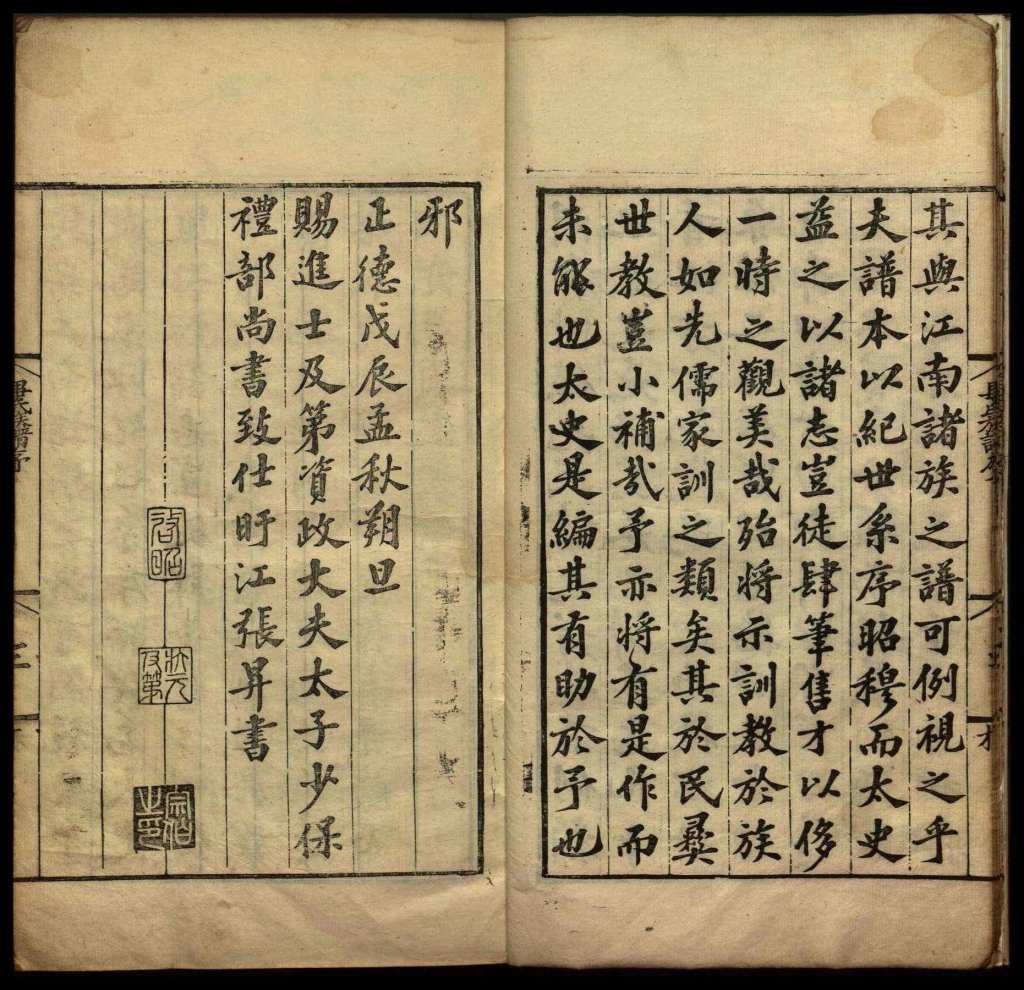 其與江南諸族之譜可例視之乎
夫譜本以紀世系序昭穆而太史
益之以諸志豈徒肆筆售才以侈
一時之觀美哉殆將示訓教於族
人如先儒家訓之類矣其於民彝
世教豈小補哉予亦將有是作而
未能也太史是編其有助於予也
邪
正德戊辰孟秋朔旦
賜進士及第資政大夫太子少保
禮部尚書致仕旴江張昇書
啓昭
狀元及第